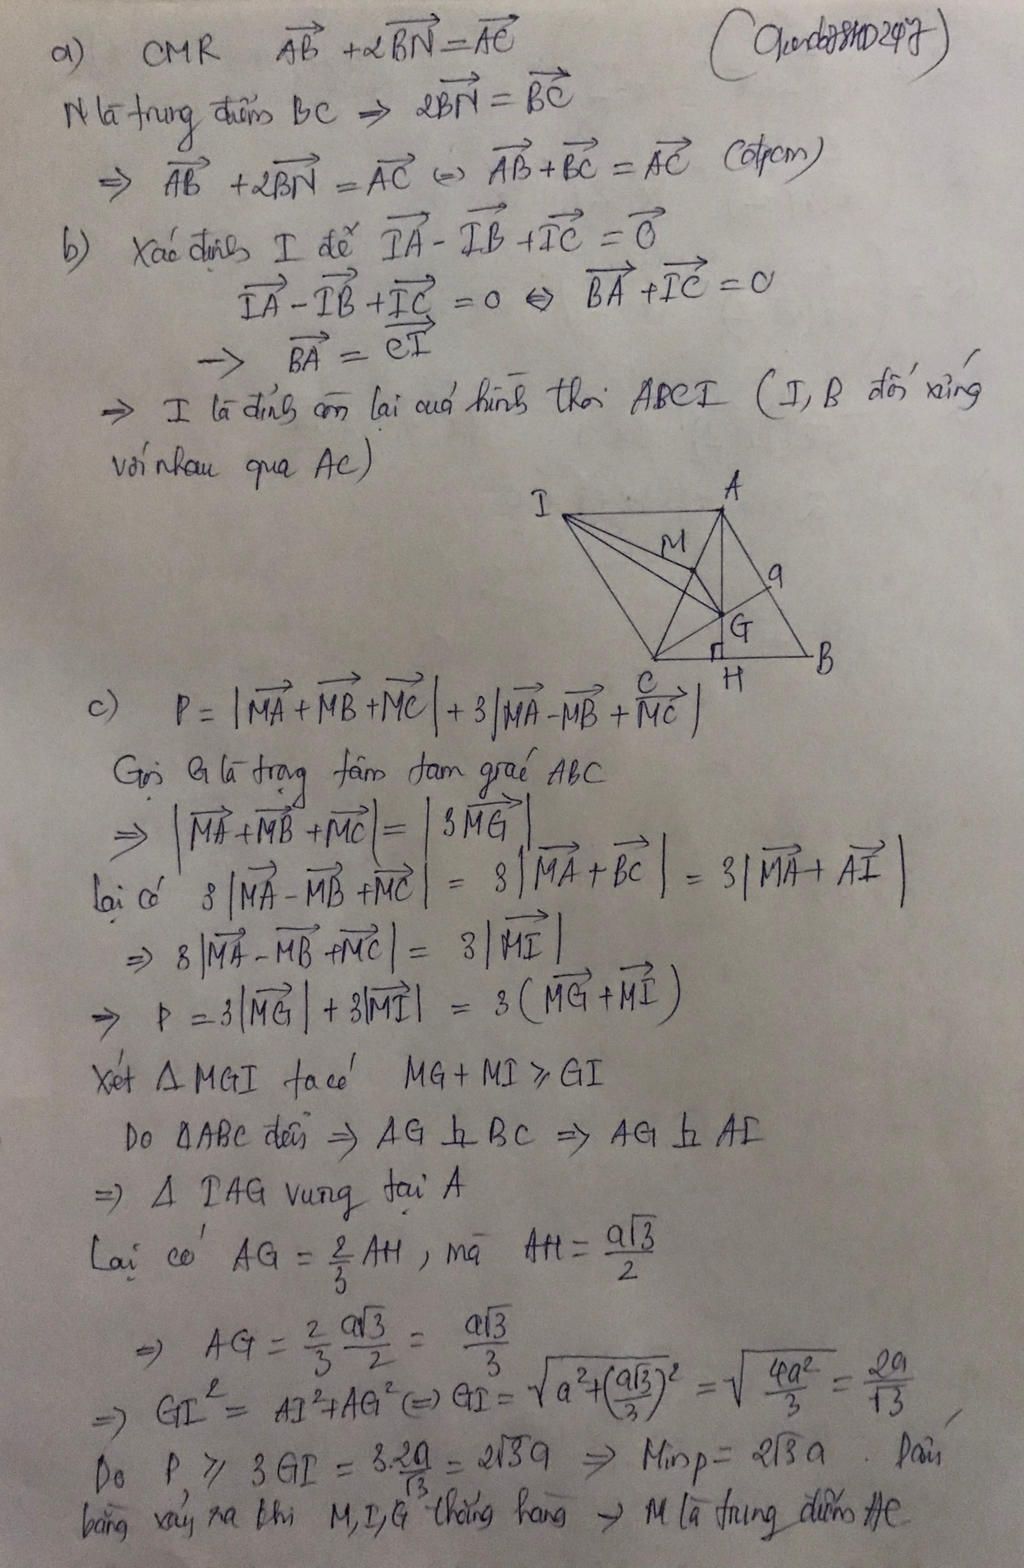 a) CMR $\overrightarrow{AB} + 2\overrightarrow{BN} = \overrightarrow{AC}$
N là trung điểm BC ⇒ $2\overrightarrow{BN} = \overrightarrow{BC}$
⇒ $\overrightarrow{AB} + 2\overrightarrow{BN} = \overrightarrow{AC}$ ⇔ $\overrightarrow{AB} + \overrightarrow{BC} = \overrightarrow{AC}$ (đpcm)
b) Xác định I để $\overrightarrow{IA} - \overrightarrow{IB} + \overrightarrow{IC} = \overrightarrow{0}$
$\overrightarrow{IA} - \overrightarrow{IB} + \overrightarrow{IC} = 0$ ⇔ $\overrightarrow{BA} + \overrightarrow{IC} = 0$
→ $\overrightarrow{BA} = \overrightarrow{CI}$
⇒ I là đỉnh còn lại cuả hình thoi ABCI (I, B đối xứng
với nhau qua AC)
I A
M
a
G
C H B
c) P = $|\overrightarrow{MA} + \overrightarrow{MB} + \overrightarrow{MC}| + 3|\overrightarrow{MA} - \overrightarrow{MB} + \overrightarrow{MC}|$
Gọi G là trọng tâm tam giác ABC
⇒ $|\overrightarrow{MA} + \overrightarrow{MB} + \overrightarrow{MC}| = |3\overrightarrow{MG}|$
Lại có $3|\overrightarrow{MA} - \overrightarrow{MB} + \overrightarrow{MC}| = 3|\overrightarrow{MA} + \overrightarrow{BC}| = 3|\overrightarrow{MA} + \overrightarrow{AI}|$
⇒ $3|\overrightarrow{MA} - \overrightarrow{MB} + \overrightarrow{MC}| = 3|\overrightarrow{MI}|$
⇒ P = $3|\overrightarrow{MG}| + 3|\overrightarrow{MI}| = 3(\overrightarrow{MG} + \overrightarrow{MI})$
Xét Δ MGI ta có MG + MI ⩾ GI
Do ΔABC đều ⇒ AG ⊥ BC ⇒ AG ⊥ AI
⇒ Δ IAG vuông tại A
Lại có AG = $\frac{2}{3}$ AH, mà AH = $\frac{a\sqrt{3}}{2}$
⇒ AG = $\frac{2}{3} \frac{a\sqrt{3}}{2} = \frac{a\sqrt{3}}{3}$
⇒ $GI^2 = AI^2 + AG^2$ ⇔ GI = $\sqrt{a^2 + (\frac{a\sqrt{3}}{3})^2} = \sqrt{\frac{4a^2}{3}} = \frac{2a}{\sqrt{3}}$
Do P ⩾ 3GI = $3.\frac{2a}{\sqrt{3}} = 2\sqrt{3}a$ ⇒ Min p = $2\sqrt{3}a$. Dấu
bằng xảy ra khi M, I, G thẳng hàng → M là trung điểm AC